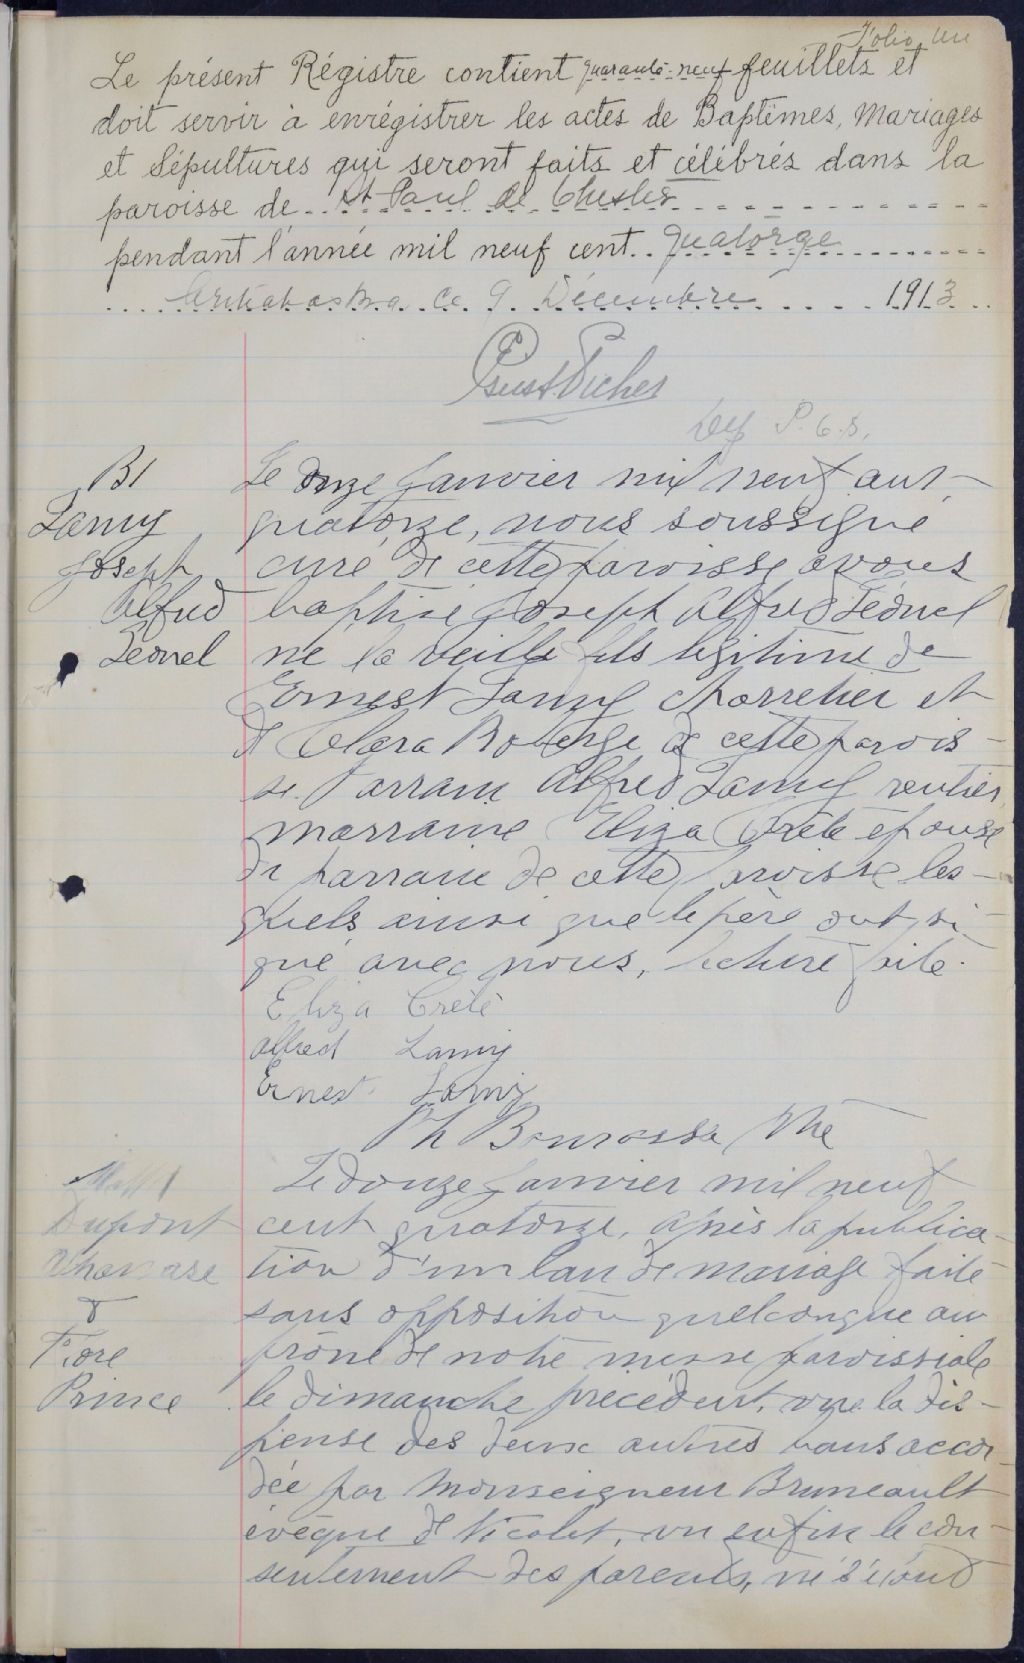 Folio un
Le présent Régistre contient quarante-neuf feuillets et
doit servir à enrégistrer les actes de Baptêmes, Mariages
et Sépultures qui seront faits et célébrés dans la
paroisse de St Paul de Chester
pendant l'année mil neuf cent quatorze
Arthabaska ce 9 Décembre 1913
Dep P.C.S.
B1
Lamy
Joseph
Alfred
Léonel
Le onze Janvier mil neuf cent
quatorze, nous soussigné
curé de cette paroisse avons
baptisé Joseph Alfred Léonel
né la veille fils légitime de
Ernest Lamy charretier et
de Clara Roberge de cette parois-
se. Parrain Alfred Lamy rentier,
marraine Eliza Crête épouse
du parrain de cette paroisse les-
quels ainsi que le père ont si-
gné avec nous, lecture faite.
Eliza Crête
Alfred Lamy
Ernest Lamy
Ph Bourassa Ptre
M 1
Dupont
Athanase
&
Flore
Prince
Le douze Janvier mil neuf
cent quatorze, après la publica-
tion d'un ban de mariage faite
sans opposition quelconque au
prône de notre messe paroissiale
le dimanche précédent, vu la dis-
pense des deux autres bans accor-
dée par Monseigneur Bruneault
évêque de Nicolet, vu enfin le con-
sentement des parents, ne s'étant